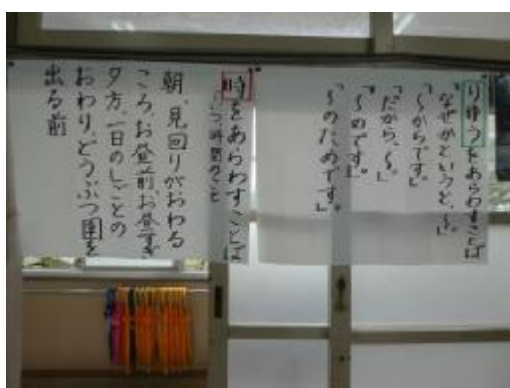 りゆうをあらわすことば
「なぜかというと、〜。」
「〜からです。」
「だから、〜。」
「〜のためです。」
時をあらわすことば
朝、見回りがおわる
ころ、お昼前お昼すぎ
夕方、一日のしごとの
おわり、どうぶつ園を
出る前